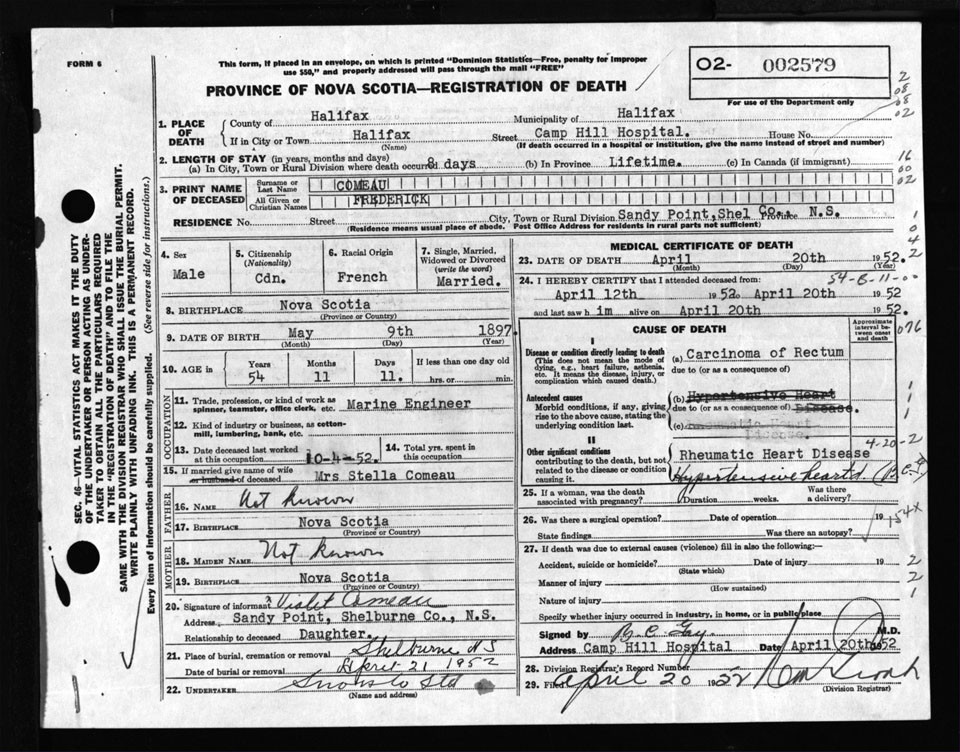 FORM 6
This form, if placed in an envelope, on which is printed "Dominion Statistics—Free, penalty for improper
use $50," and properly addressed will pass through the mail "FREE"
PROVINCE OF NOVA SCOTIA—REGISTRATION OF DEATH
02- 002579
For use of the Department only
2
08
08
02
1. PLACE OF DEATH
County of Halifax Municipality of Halifax
If in City or Town Halifax Street Camp Hill Hospital. House No.
(Name) (If death occurred in a hospital or institution, give the name instead of street and number)
2. LENGTH OF STAY (in years, months and days)
(a) In City, Town or Rural Division where death occurred 8 days (b) In Province Lifetime. (c) In Canada (if immigrant)
16
00
02
3. PRINT NAME OF DECEASED
Surname or Last Name COMEAU
All Given or Christian Names FREDERICK
RESIDENCE No. Street City, Town or Rural Division Sandy Point, Shel Co., Province N.S.
(Residence means usual place of abode. Post Office Address for residents in rural parts not sufficient)
1
0
4
2
4. Sex
Male
5. Citizenship
(Nationality)
Cdn.
6. Racial Origin
French
7. Single, Married, Widowed or Divorced
(write the word)
Married.
8. BIRTHPLACE Nova Scotia
(Province or Country)
9. DATE OF BIRTH May 9th 1897.
(Month) (Day) (Year)
10. AGE in
Years Months Days If less than one day old
54 11 11. hrs. or min.
OCCUPATION
11. Trade, profession, or kind of work as
spinner, teamster, office clerk, etc. Marine Engineer
12. Kind of industry or business, as cotton-
mill, lumbering, bank, etc.
13. Date deceased last worked
at this occupation 10-4-52.
14. Total yrs. spent in
this occupation
15. If married give name of wife
or husband of deceased Mrs Stella Comeau
FATHER
16. Name Not Known
17. Birthplace Nova Scotia
(Province or Country)
MOTHER
18. MAIDEN NAME Not Known
19. BIRTHPLACE Nova Scotia
(Province or Country)
20. Signature of informant x Violet Comeau
Address Sandy Point, Shelburne Co., N.S.
Relationship to deceased Daughter.
21. Place of burial, cremation or removal Shelburne NS
Date of burial or removal April 21 1952
22. UNDERTAKER
(Name and address)
MEDICAL CERTIFICATE OF DEATH
23. DATE OF DEATH April 20th 1952.
(Month) (Day) (Year)
24. I HEREBY CERTIFY that I attended deceased from: 54-B-11-00
April 12th 1952 to April 20th 1952
and last saw him alive on April 20th 1952
CAUSE OF DEATH
Approximate interval between onset and death
076
I
Disease or condition directly leading to death
(This does not mean the mode of dying, e.g., heart failure, asthenia, etc. It means the disease, injury, or complication which caused death.)
(a) Carcinoma of Rectum
due to (or as a consequence of)
Antecedent causes
Morbid conditions, if any, giving rise to the above cause, stating the underlying condition last.
(b) Hypertensive Heart
due to (or as a consequence of) Disease.
(c) Rheumatic Heart
Disease.
1
1
1
II
Other significant conditions
contributing to the death, but not related to the disease or condition causing it.
4-20-2
Rheumatic Heart Disease
Hypertensive heart d.
25. If a woman, was the death
associated with pregnancy? Duration weeks. Was there a delivery?
26. Was there a surgical operation? Date of operation 19
154X
State findings Was there an autopsy?
27. If death was due to external causes (violence) fill in also the following:
Accident, suicide or homicide? Date of injury 19
(State which)
Manner of injury
(How sustained)
Nature of injury
2
2
1
Specify whether injury occurred in industry, in home, or in public place
Signed by M.D.
Address Camp Hill Hospital Date April 20th 1952
28. Division Registrar's Record Number
29. Filed April 20 1952
(Division Registrar)
SEC. 46—VITAL STATISTICS ACT MAKES IT THE DUTY
OF THE UNDERTAKER OR PERSON ACTING AS UNDER-
TAKER TO OBTAIN ALL THE PARTICULARS REQUIRED
IN THE "REGISTRATION OF DEATH" AND TO FILE THE
SAME WITH THE DIVISION REGISTRAR WHO SHALL ISSUE THE BURIAL PERMIT.
WRITE PLAINLY WITH UNFADING INK. THIS IS A PERMANENT RECORD.
Every item of information should be carefully supplied. (See reverse side for instructions.)